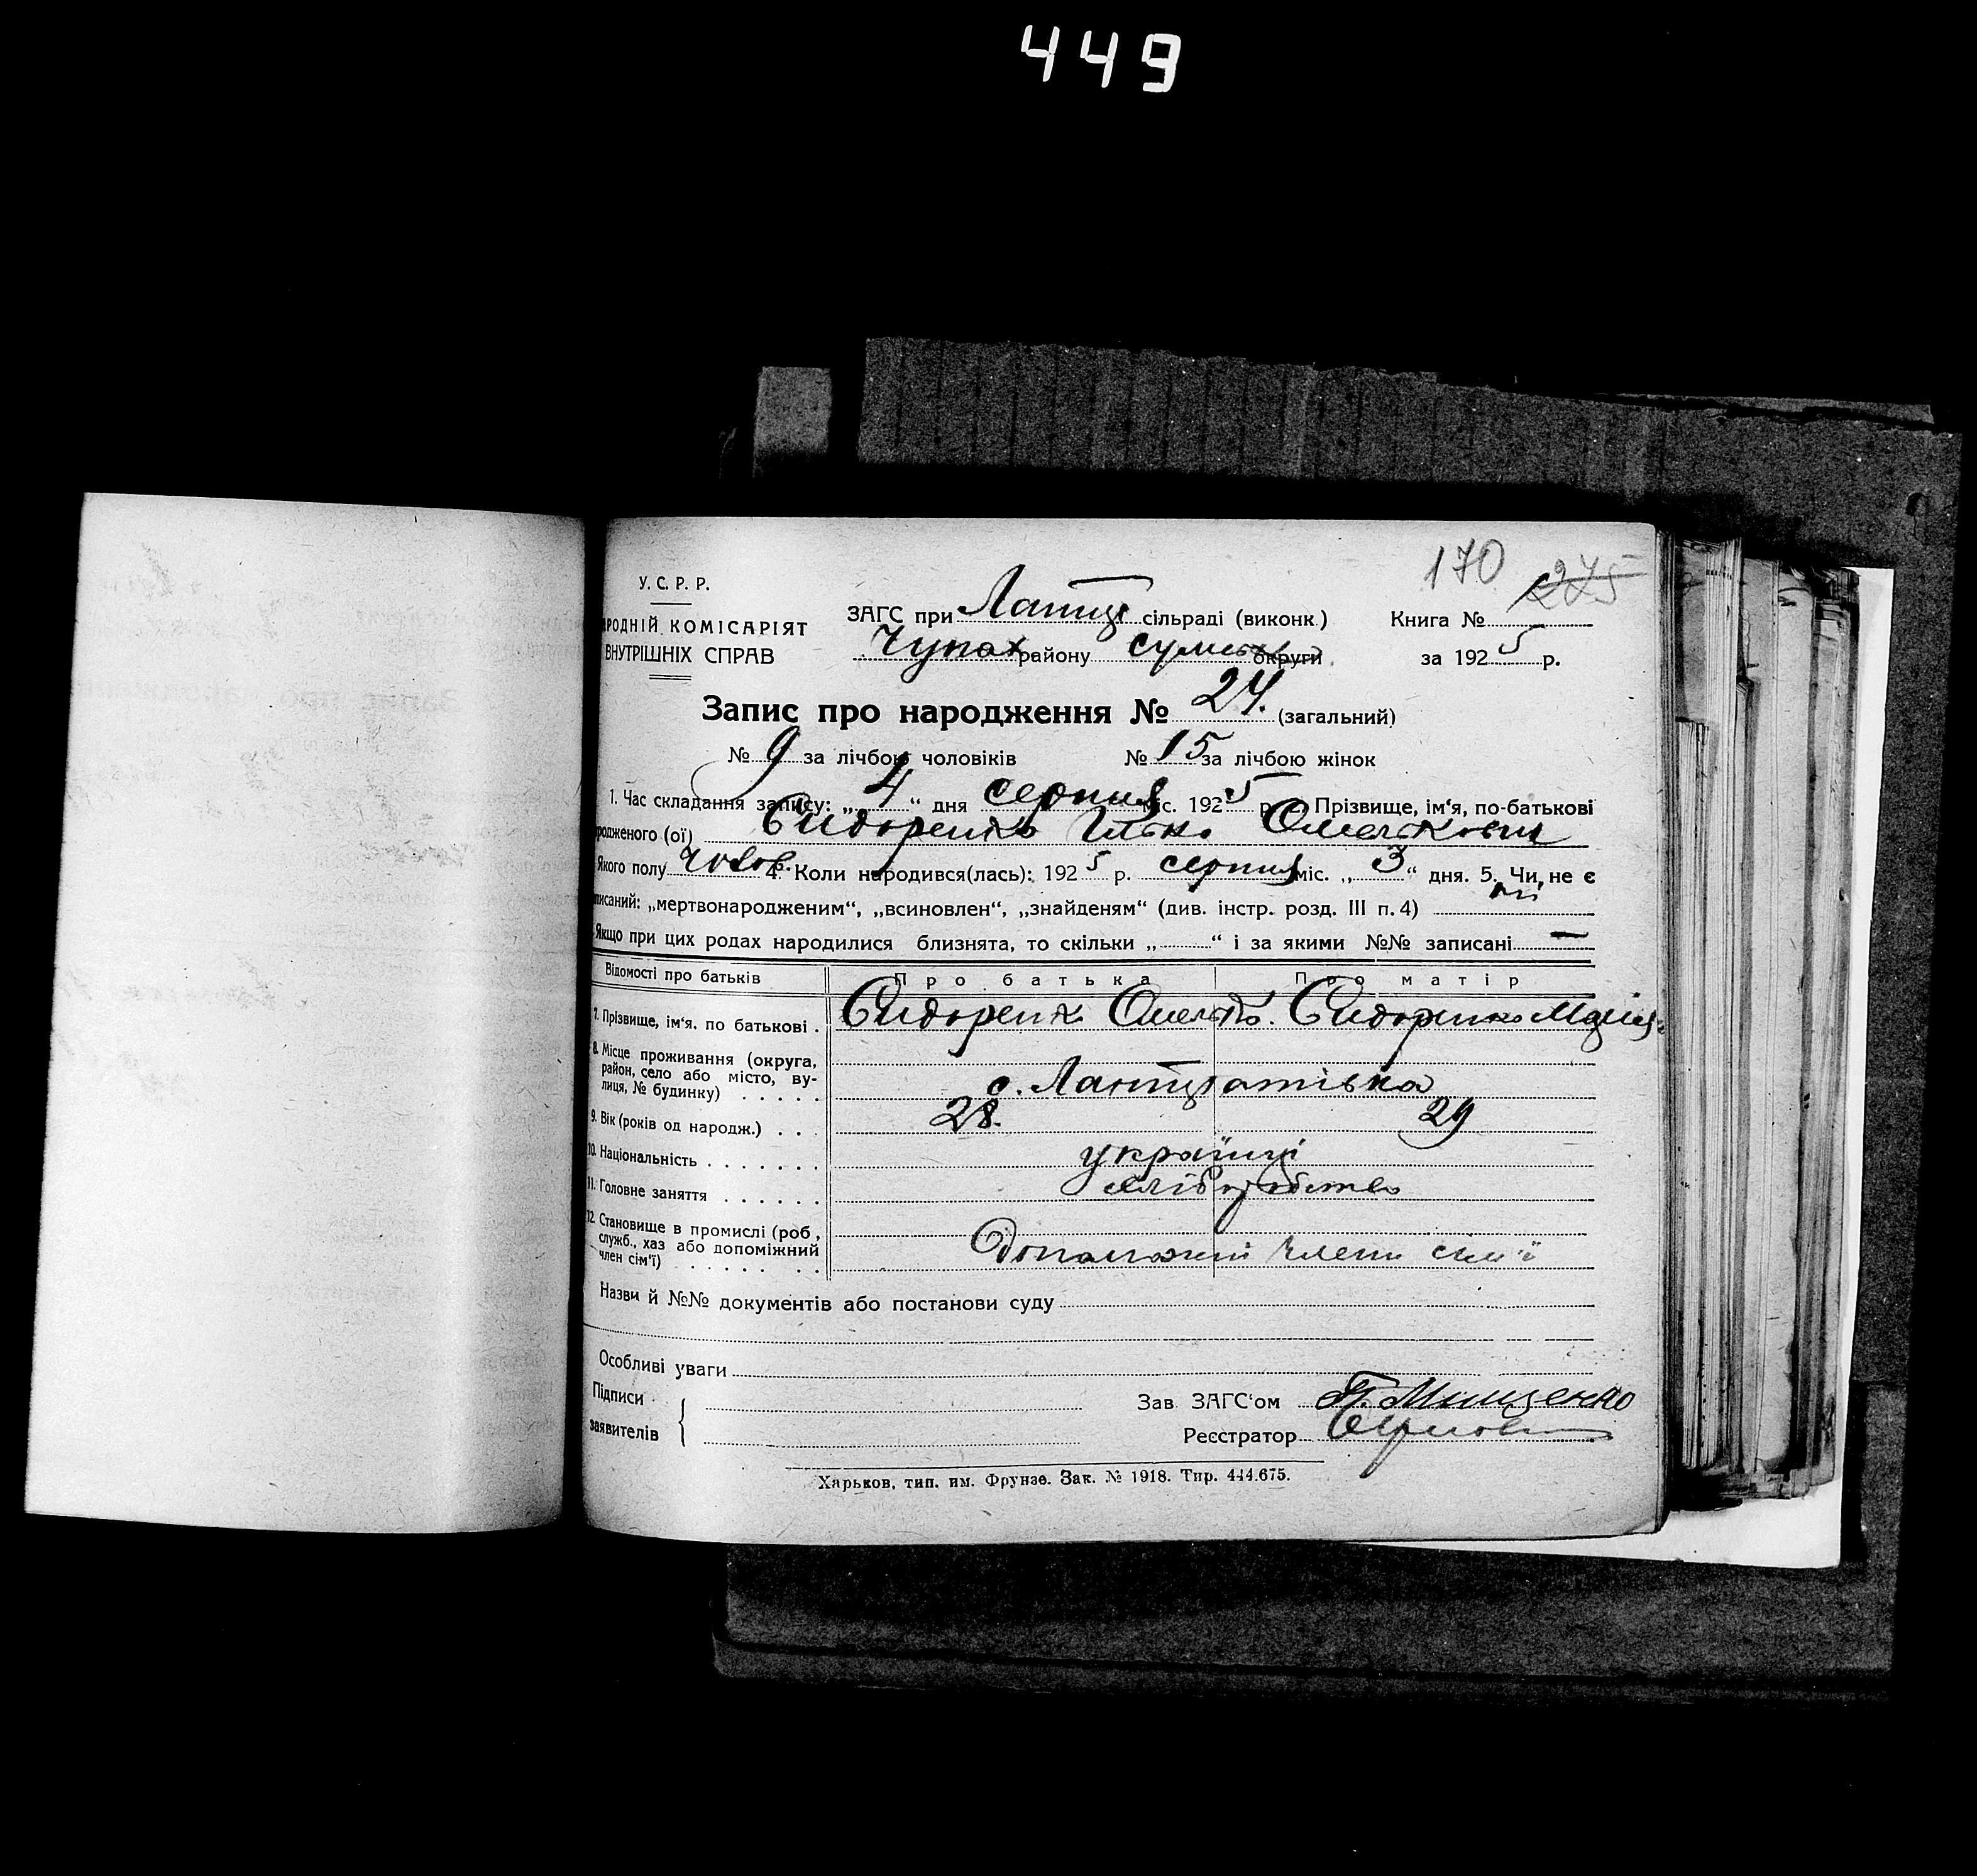 449
170 275
У. С. Р. Р.
РОДНІЙ КОМІСАРІЯТ
ВНУТРІШНІХ СПРАВ
ЗАГС при сільраді (виконк.) Книга №
Чупах району Сумськ округи за 1925 р.
Запис про народження № 24. (загальний)
№ 9 за лічбою чоловіків № 15 за лічбою жінок
1. Час складання запису: „4“ дня серпня міс. 1925 р. Прізвище, ім‘я, по-батькові
родженого (ої) Сидоренко Ілько Омелькович
Якого полу чолов. 4. Коли народився(лась): 1925 р. серпня міс. „3“ дня. 5. Чи не є
писаний: „мертвонародженим“, „всиновлен“, „знайденям“ (див. інстр. розд. III п. 4) ні
Якщо при цих родах народилися близнята, то скільки „ “ і за якими №№ записані —
Відомості про батьків Про батька Про матір
7. Прізвище, ім‘я, по батькові . Сидоренк Омельк. Сидоренко Марія
8. Місце проживання (округа,
район, село або місто, ву-
лиця, № будинку) . . . . . с. Лантратівка
9. Вік (років од народж.) . . . 28. 29
10. Національність . . . . . . . україці
11. Головне заняття . . . . . . хліборобство
12. Становище в промислі (роб.,
служб., хаз або допоміжний
член сім‘ї) . . . . . . . . Допоможні члени сім'ї
Назви й №№ документів або постанови суду
Особливі уваги
Підписи
заявителів
Зав ЗАГС‘ом Мищенко
Реєстратор
Харьков, тип. им. Фрунзе. Зак. № 1918. Тир. 444.675.